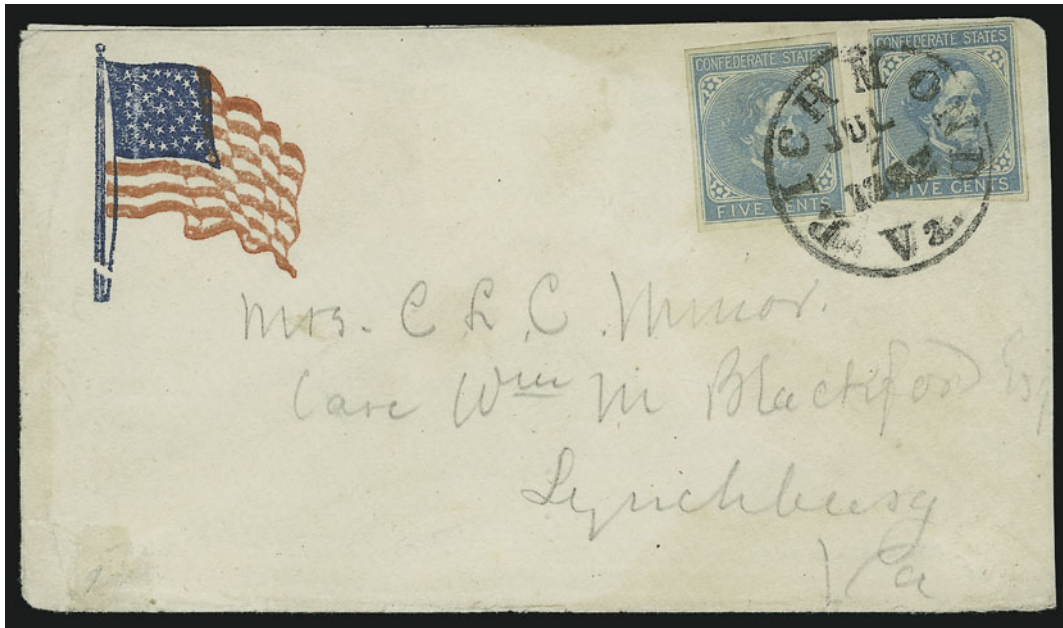 CONFEDERATE STATES
FIVE CENTS
CONFEDERATE STATES
FIVE CENTS
RICHMOND
JUL
7
1862
Va.
Mrs. C L C. Minor.
Care Wm M Blackford Esq
Lynchburg
Va